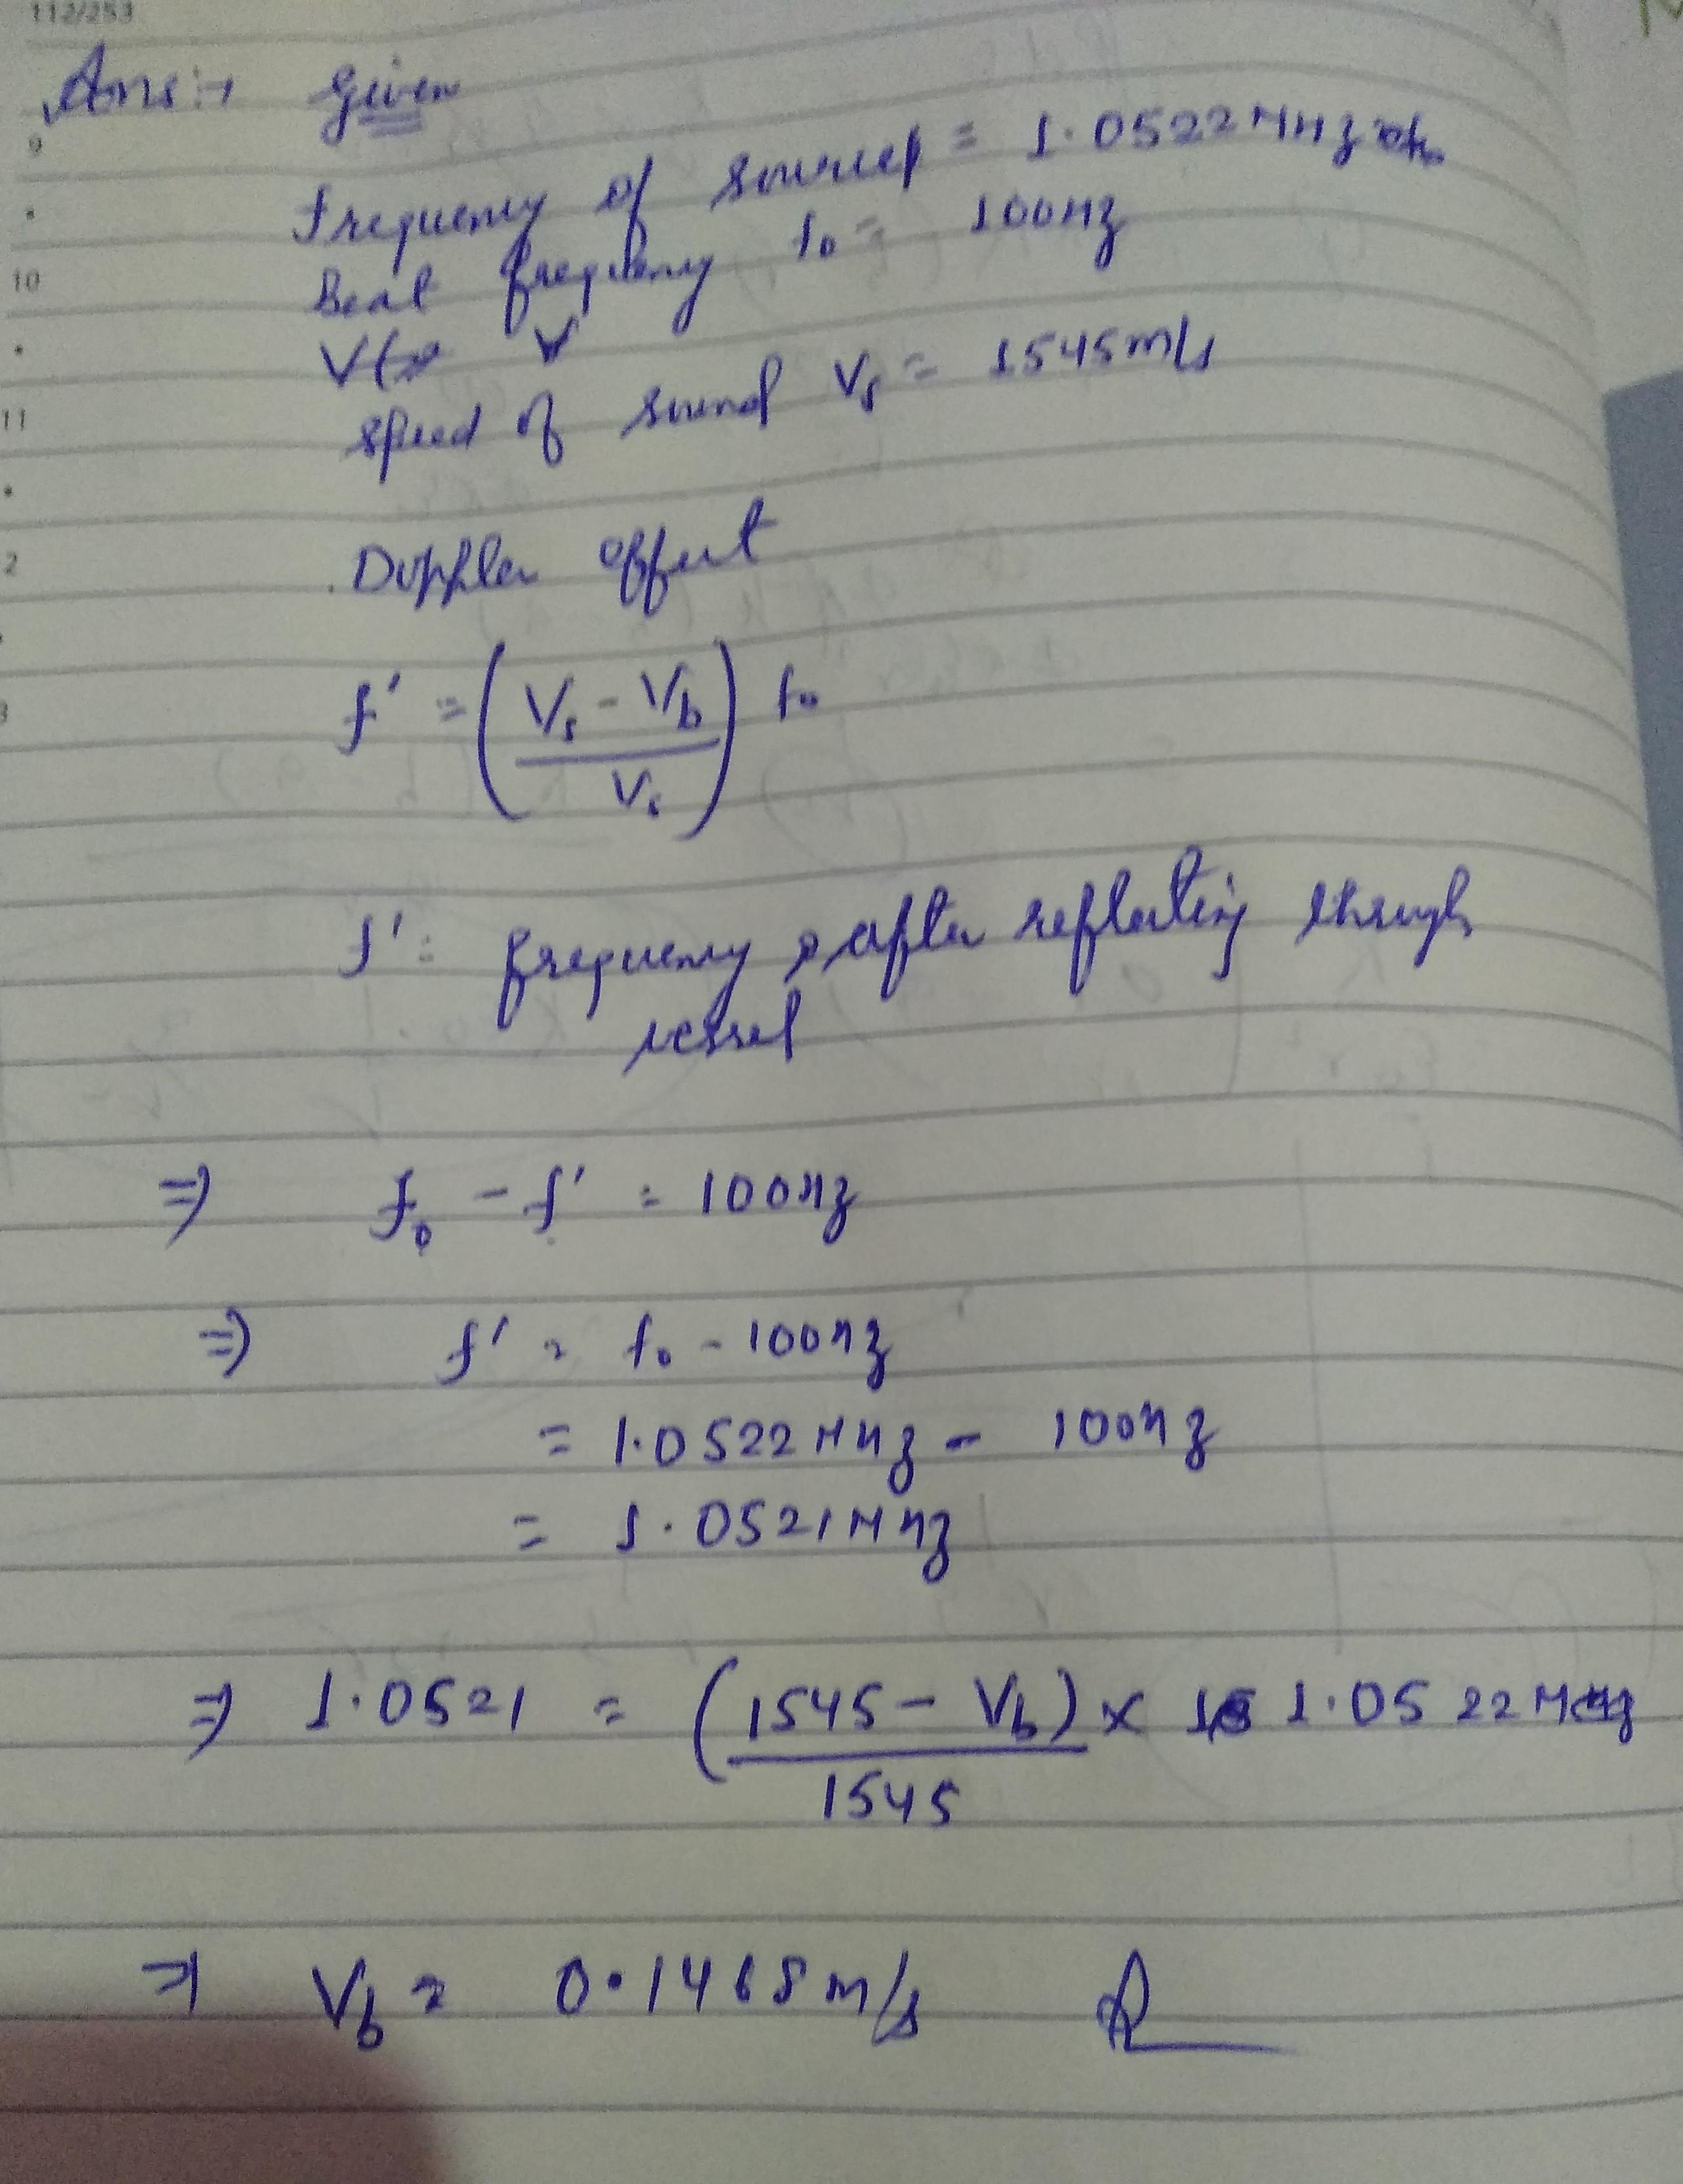 112/253
Ans:→ Given
9
Frequency of source = 1.0522 MHz
10
Beat frequency fo = 100Hz
11
Speed of sound Vs = 1545m/s
2
Doppler effect
3
f' = (Vs - Vb / Vs) fo
f' = frequency after reflecting through
vessel
⇒ fo - f' = 100Hz
⇒ f' = fo - 100Hz
= 1.0522 MHz - 100Hz
= 1.0521 MHz
⇒ 1.0521 = (1545 - Vb) / 1545 × 1.0522 MHz
⇒ Vb = 0.1468 m/s